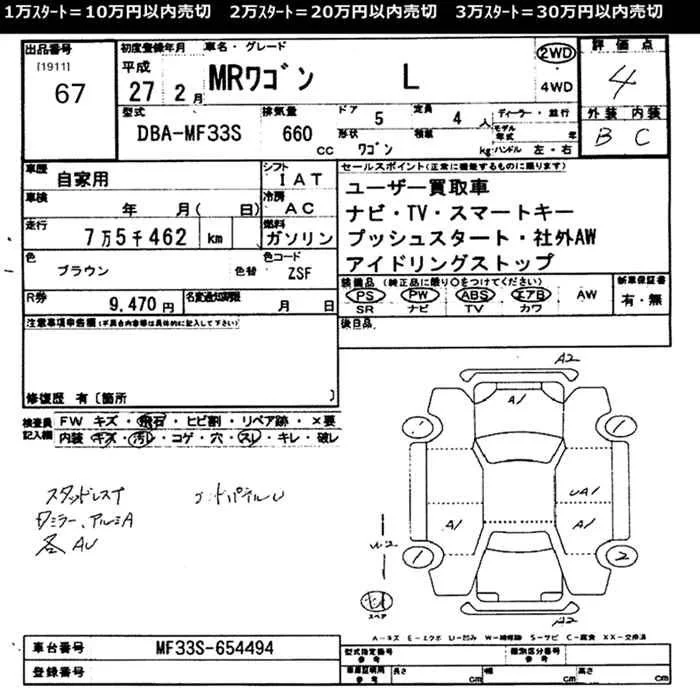 1万ｽﾀｰﾄ＝10万円以内売切　2万ｽﾀｰﾄ＝20万円以内売切　3万ｽﾀｰﾄ＝30万円以内売切
出品番号
[1911]
67
初度登録年月
平成
27 2月
車名・グレード
MRﾜｺﾞﾝ L
2WD
・
4WD
評価点
4
型式
DBA-MF33S
排気量
660 cc
ドア 5
定員 4人
形状 ﾜｺﾞﾝ
積載 kg
ディーラー・並行
モデル年式 年
ハンドル 左・右
外装 内装
B C
車歴
自家用
シフト
I A T
車検
年 月( 日)
冷房
A C
走行
7万5千462 km
燃料
ガソリン
色
ブラウン
色替
色コード
ZSF
R券
9,470円
名変通知期限
月 日
セールスポイント(正常に機能するものに限ります)
ユーザー買取車
ナビ・TV・スマートキー
プッシュスタート・社外AW
アイドリングストップ
装備品(純正品に限り○をつけてください)
PS ・ PW ・ ABS ・ エアB ・ AW
SR ナビ TV カワ
新車保証書
有・無
後日品
注意事項申告欄(不具合内容等は具体的に記入して下さい)
修復歴 有〔箇所 〕
検査員
記入欄
FW キズ・飛石・ヒビ割・リペア跡・×要
内装 キズ・汚レ・コゲ・穴・スレ・キレ・破レ
スタッドレスT
ワミラー、アルミA
各AU
A2
A1
1
UA1
A1
A1
1
2
U-2
スペア
A2
A－キズ E－エクボ U－凹み W－補修跡 S－サビ C－腐食 XX－交換済
車台番号
MF33S-654494
登録番号
型式指定番号
参考
類別区分番号
参考
車庫証明用
参考
長さ cm
幅 cm
高さ cm